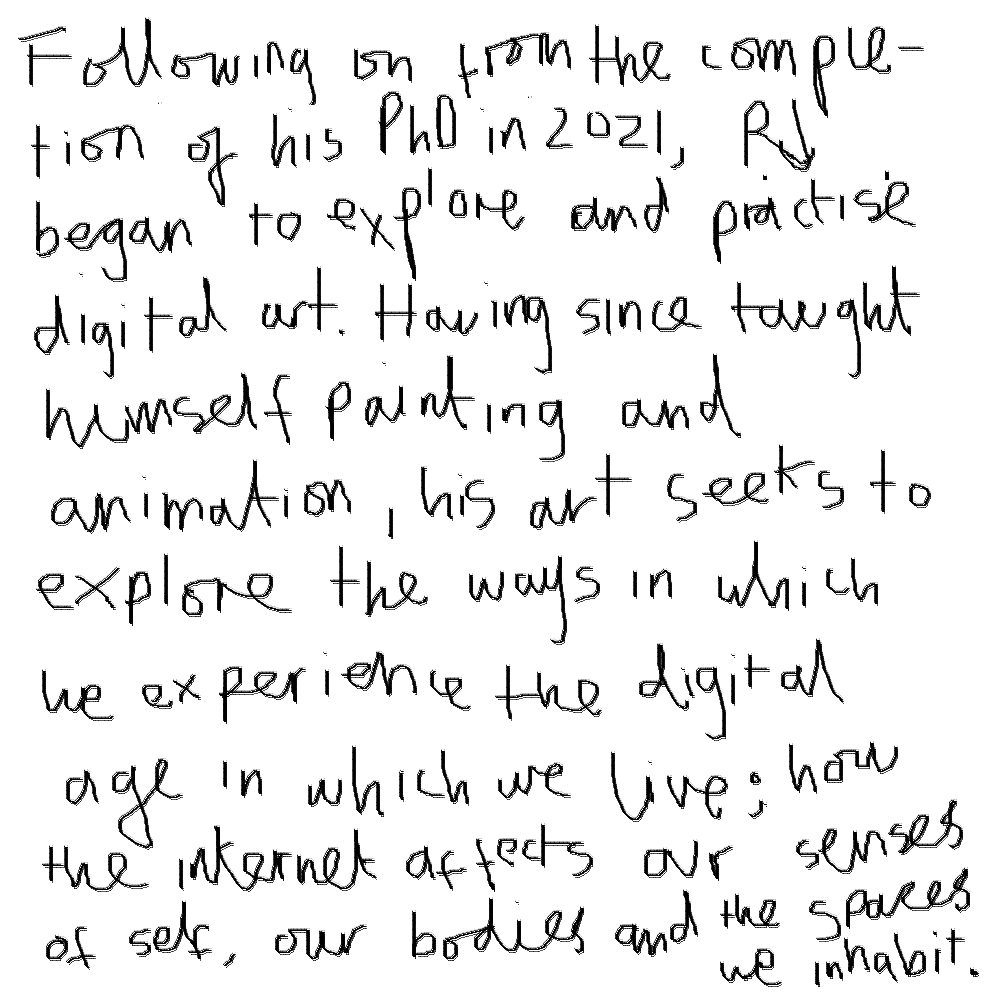 Following on from the comple-
tion of his PhD in 2021, RJ
began to explore and practise
digital art. Having since taught
himself painting and
animation, his art seeks to
explore the ways in which
we experience the digital
age in which we live; how
the internet affects our senses
of self, our bodies and the spaces
we inhabit.